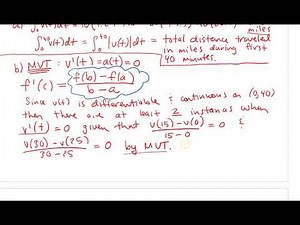 miles
∫₀⁴⁰ v(t)dt = ∫₀⁴⁰ |v(t)|dt = total distance traveled
in miles during first
40 minutes.
b) MVT: v'(t) = a(t) = 0
f'(c) = f(b) - f(a) / b - a
Since v(t) is differentiable & continuous on (0,40)
then there are at least 2 instances when
v'(t) = 0 given that v(15) - v(0) / 15 - 0 = 0 &
v(30) - v(25) / 30 - 25 = 0 by MVT.